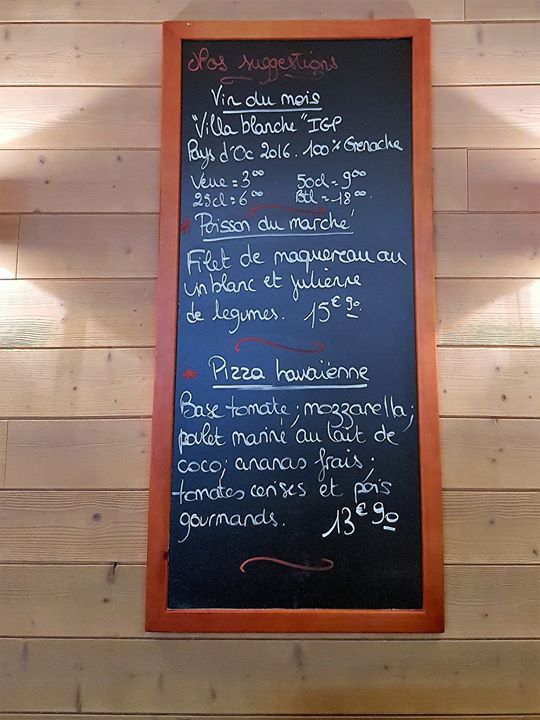 Nos suggestions
Vin du mois
"Villa blanche" IGP
Pays d'Oc 2016. 100% Grenache
Verre = 3°° 50cl = 9°°
25cl = 6°° Btl = 18°°.
* Poisson du marché
Filet de maquereau au
vin blanc et julienne
de legumes. 15€90
* Pizza hawaïenne
Base tomate; mozzarella;
poulet mariné au lait de
coco; ananas frais;
tomates cerises et pois
gourmands. 13€90